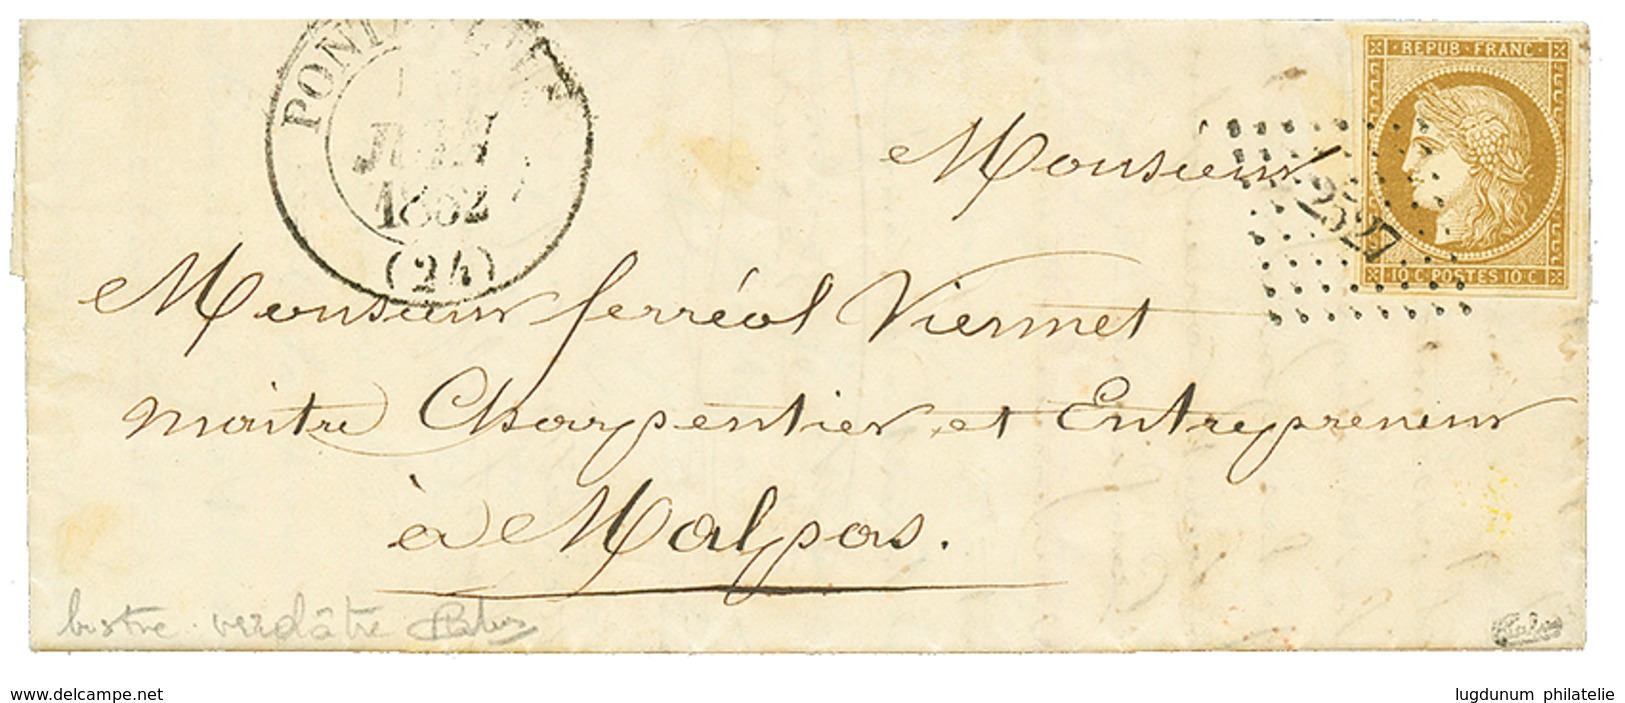 REPUB · FRANC ·
10 C · POSTES 10 C
2527
JUIN
1862
(24)
Monsieur
Monsieur ferréol Viermet
maitre Charpentier et Entrepreneur
à Malpas.
bistre · verdâtre
www.delcampe.net
lugdunum philatelie